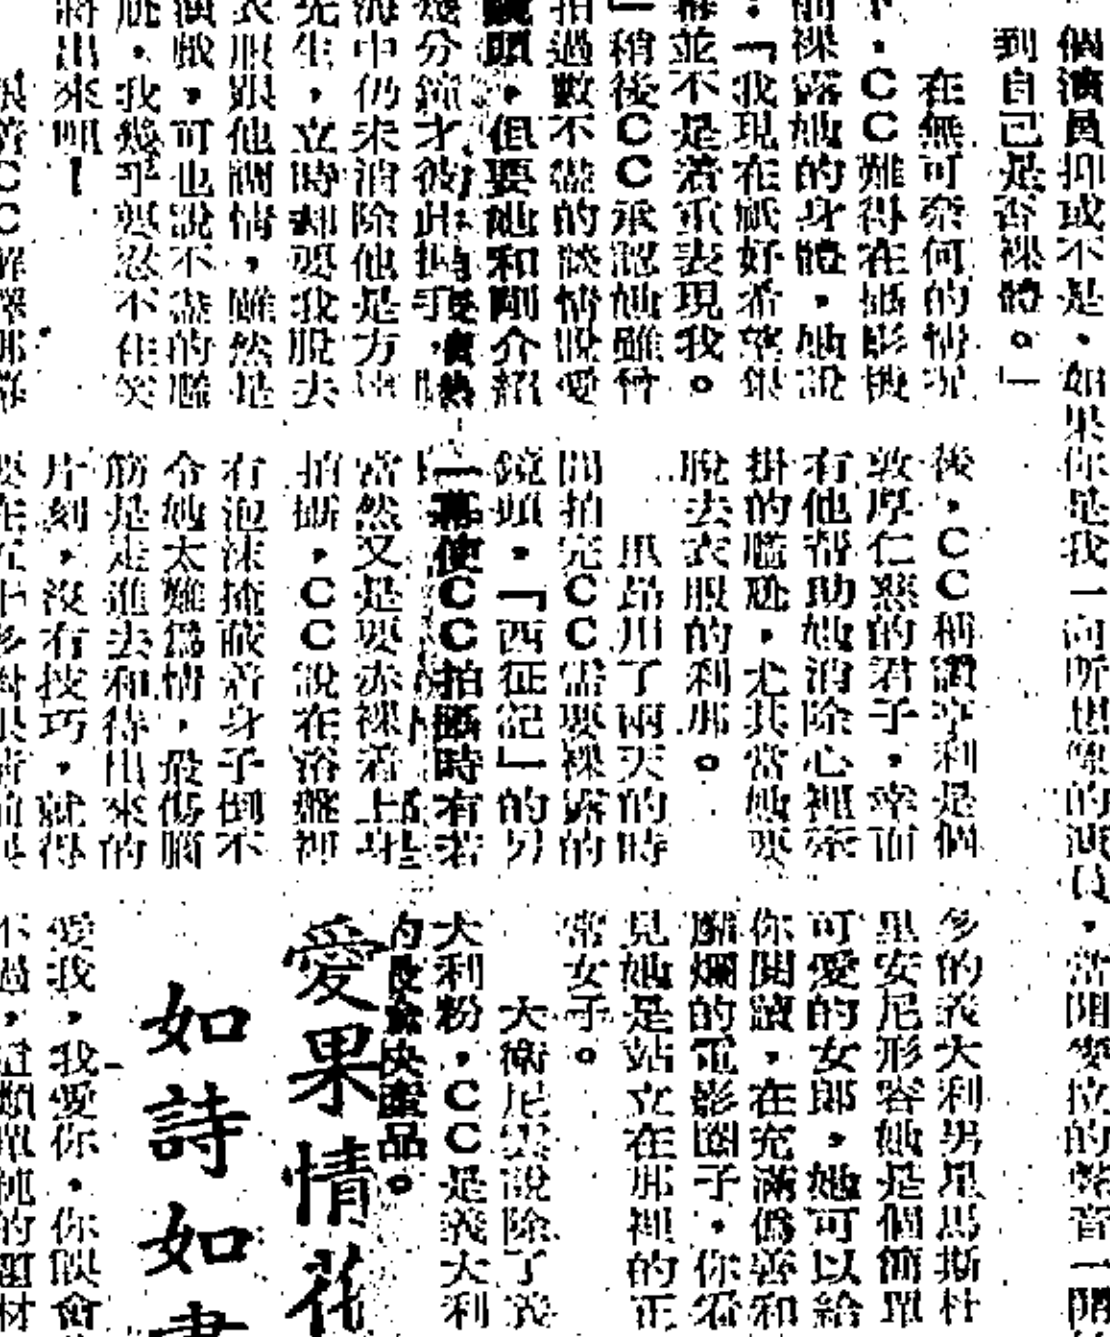 個演員抑或不是，如果你是我一向所想像的演員，當開麥拉的聲音一開
到自己是否裸體。」
在無可奈何的情況
下，CC難得在攝影機
前裸露她的身體，她說
：「我現在祇好希望銀
幕並不是着重表現我。
」稍後CC承認她雖曾
拍過數不盡的談情說愛
鏡頭，但要她和剛介紹
幾分鐘才彼此握手，
中仍未消除他是方
先生，立時却要我脫去
衣服跟他調情，雖然是
演戲，可也說不盡的尷
尬，我幾乎要忍不住笑
將出來呢！
CC解釋那
後，CC稱讚亨利是個
敦厚仁慈的君子，幸而
有他帮助她消除心裡牽
掛的尷尬，尤其當她要
脫去衣服的利那。
里昂用了兩天的時
間拍完CC需要裸露的
鏡頭，「西征記」的另
一幕使CC拍攝時有若
當然又是要赤裸着上身
拍攝，CC說在浴盤裡
有泡沫掩蔽着身子倒不
令她太難爲情，最傷腦
筋是走進去和待出來的
片刻，沒有技巧，就得
多的義大利男星馬斯杜
里安尼形容她是個簡單
可愛的女郎，她可以給
你閱讀，在充滿僞善和
靡爛的電影圈子，你看
見她是站立在那裡的正
常女子。
大衛尼雲說除了義
大利粉，CC是義大利
的最愉快產品。
愛果情花
如詩如畫
愛我，我愛你，你誤會
不過，這類單純的題材